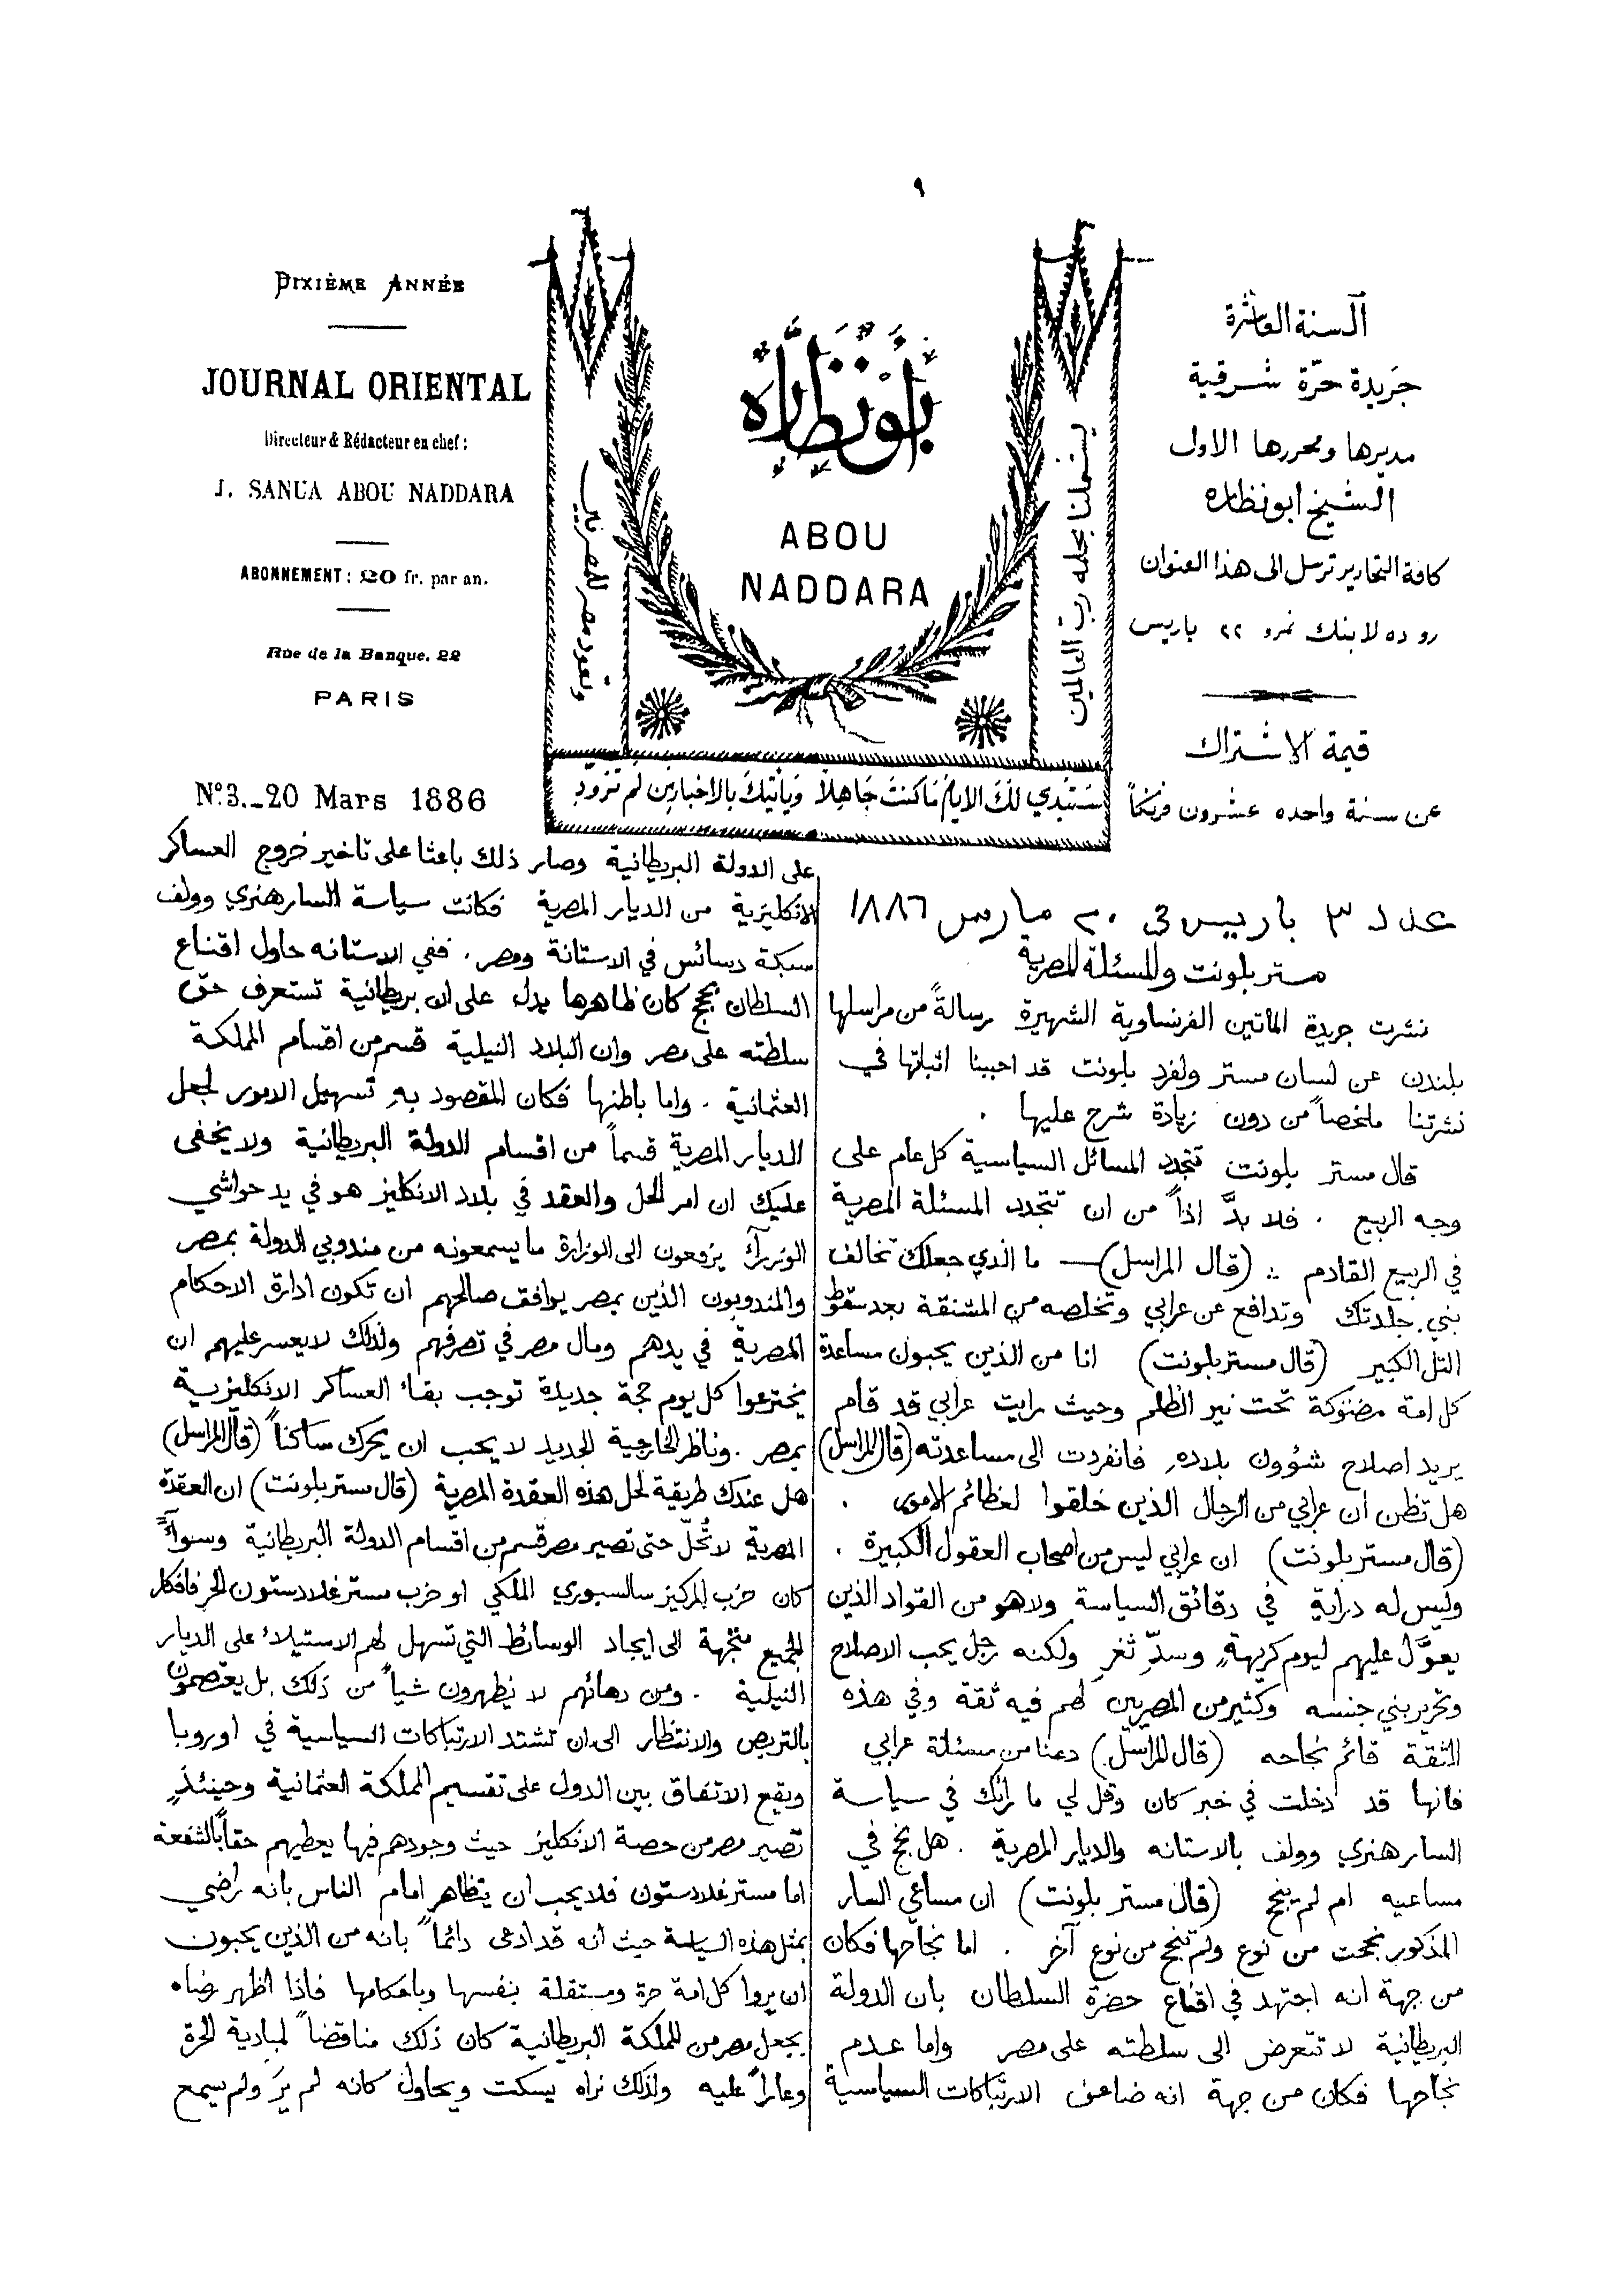 ٩
DIXIÈME ANNÉE
JOURNAL ORIENTAL
Directeur & Rédacteur en chef:
J. SANUA ABOU NADDARA
ABONNEMENT: 20 fr. par an.
Rue de la Banque, 22
PARIS
Nº.3._20 Mars 1886
ابو نظاره
ABOU
NADDARA
يشملنا بحلمه رب العالمين
وتعود مصر للمصريين
ستبدي لك الايام ما كنت جاهلا وياتيك بالاخبار من لم تزود
السنة العاشرة
جريدة حرّة شرقية
مديرها ومحررها الاول
الشيخ ابو نظاره
كافة التحارير ترسل الى هذا العنوان
رو ده لا بنك نمرو ٢٢ باريس
قيمة الاشتراك
عن سنة واحده عشرون فرنكاً
عدد ٣ باريس فى ٢٠ مارس ١٨٨٦
مستر بلونت والمسئلة المصرية
نشرت جريدة الماتين الفرنساوية الشهيرة رسالةً من مراسلها
بلندن عن لسان مستر ولفرد بلونت قد احببنا اثباتها في
نشرتنا ملخصاً من دون زيادة شرح عليها .
قال مستر بلونت تتجدد المسائل السياسية كل عام على
وجه الربيع . فلا بدَّ اذاً من ان تتجدد المسئلة المصرية
في الربيع القادم .: (قال المراسل) — ما الذي جعلك تخالف
بني جلدتك وتدافع عن عرابي وتخلصه من المشنقة بعد سقوط
التل الكبير (قال مستر بلونت) انا من الذين يحبون مساعدة
كل امة مضنوكة تحت نير الظلم وحيث رايت عرابي قد قام
يريد اصلاح شؤون بلاده فانفردت الى مساعدته (قال المراسل)
هل تظن ان عرابي من الرجال الذين خلقوا لعظائم الامور .
(قال مستر بلونت) ان عرابي ليس من اصحاب العقول الكبيرة .
وليس له دراية في دقائق السياسة ولا هو من القواد الذين
يعوَّل عليهم ليوم كريهةٍ وسدِّ ثغرٍ ولكنه رجل يحب الاصلاح
وتحرير بني جنسه وكثير من المصريين لهم فيه ثقة وفي هذه
الثقة قائم نجاحه (قال المراسل) دعنا من مسئلة عرابي
فانها قد دخلت في خبر كان وقل لي ما رائك في سياسة
السار هنري وولف بالاستانه والديار المصرية . هل نجح في
مساعيه ام لم ينجح (قال مستر بلونت) ان مساعي السار
المذكور نجحت من نوع ولم تنجح من نوع آخر . اما نجاحها فكان
من جهة انه اجتهد في اقناع حضرة السلطان بان الدولة
البريطانية لا تتعرض الى سلطته على مصر واما عدم
نجاحها فكان من جهة انه ضاعف الارتباكات السياسية
على الدولة البريطانية وصار ذلك باعثا على تاخير خروج العساكر
الانكليزية من الديار المصرية فكانت سياسة السار هنري وولف
سبكة دسائس في الاستانة ومصر . ففي الاستانه حاول اقناع
السلطان بحجج كان ظاهرها يدل على ان بريطانية تستعرف حق
سلطته على مصر وان البلاد النيلية قسم من اقسام المملكة
العثمانية . واما باطنها فكان المقصود به تسهيل الامور لجعل
الديار المصرية قسماً من اقسام الدولة البريطانية ولا يخفى
عليك ان امر الحل والعقد في بلاد الانكليز هو في يد حواشي
الوزرآء يرفعون الى الوزارة ما يسمعونه من مندوبي الدولة بمصر
والمندوبون الذين بمصر يوافق صالحهم ان تكون ادارة الاحكام
المصرية في يدهم ومال مصر في تصرفهم ولذلك لا يعسر عليهم ان
يخترعوا كل يوم حجة جديدة توجب بقاء العساكر الانكليزية
بمصر . وناظر الخارجية الجديد لا يحب ان يحرك ساكناً (قال المراسل)
هل عندك طريقة لحل هذه العقدة المصرية (قال مستر بلونت) ان العقدة
المصرية لا تُحلّ حتى تصير مصر قسم من اقسام الدولة البريطانية وسواءً
كان حزب المركيز سالسبوري الملكي او حزب مستر غلادستون الحر فافكار
الجميع متجهة الى ايجاد الوسائط التي تسهل لهم الاستيلاء على الديار
النيلية . ومن دهائهم لا يظهرون شياً من ذلك بل يعتصمون
بالتربص والانتظار الى ان تشتد الارتباكات السياسية في اوروبا
ويقع الاتفاق بين الدول على تقسيم المملكة العثمانية وحينئذٍ
تصير مصر من حصة الانكليز حيث وجودهم فيها يعطيهم حقاً بالشفعة
اما مستر غلادستون فلا يحب ان يتظاهر امام الناس بانه راضي
بمثل هذه السياسة حيث انه قد ادعى دائماً بانه من الذين يحبون
ان يروا كل امة حرة ومستقلة بنفسها وباحكامها فاذا اظهر رضاه
بجعل مصر من المملكة البريطانية كان ذلك مناقضاً لمبادية الحرة
وعاراً عليه ولذلك نراه يسكت ويحاول كانه لم يرَ ولم يسمع